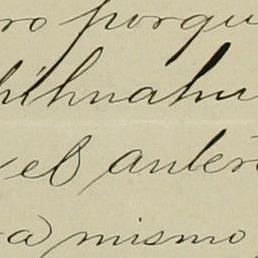 ro porqu
hihuahu
el anter
a mismo